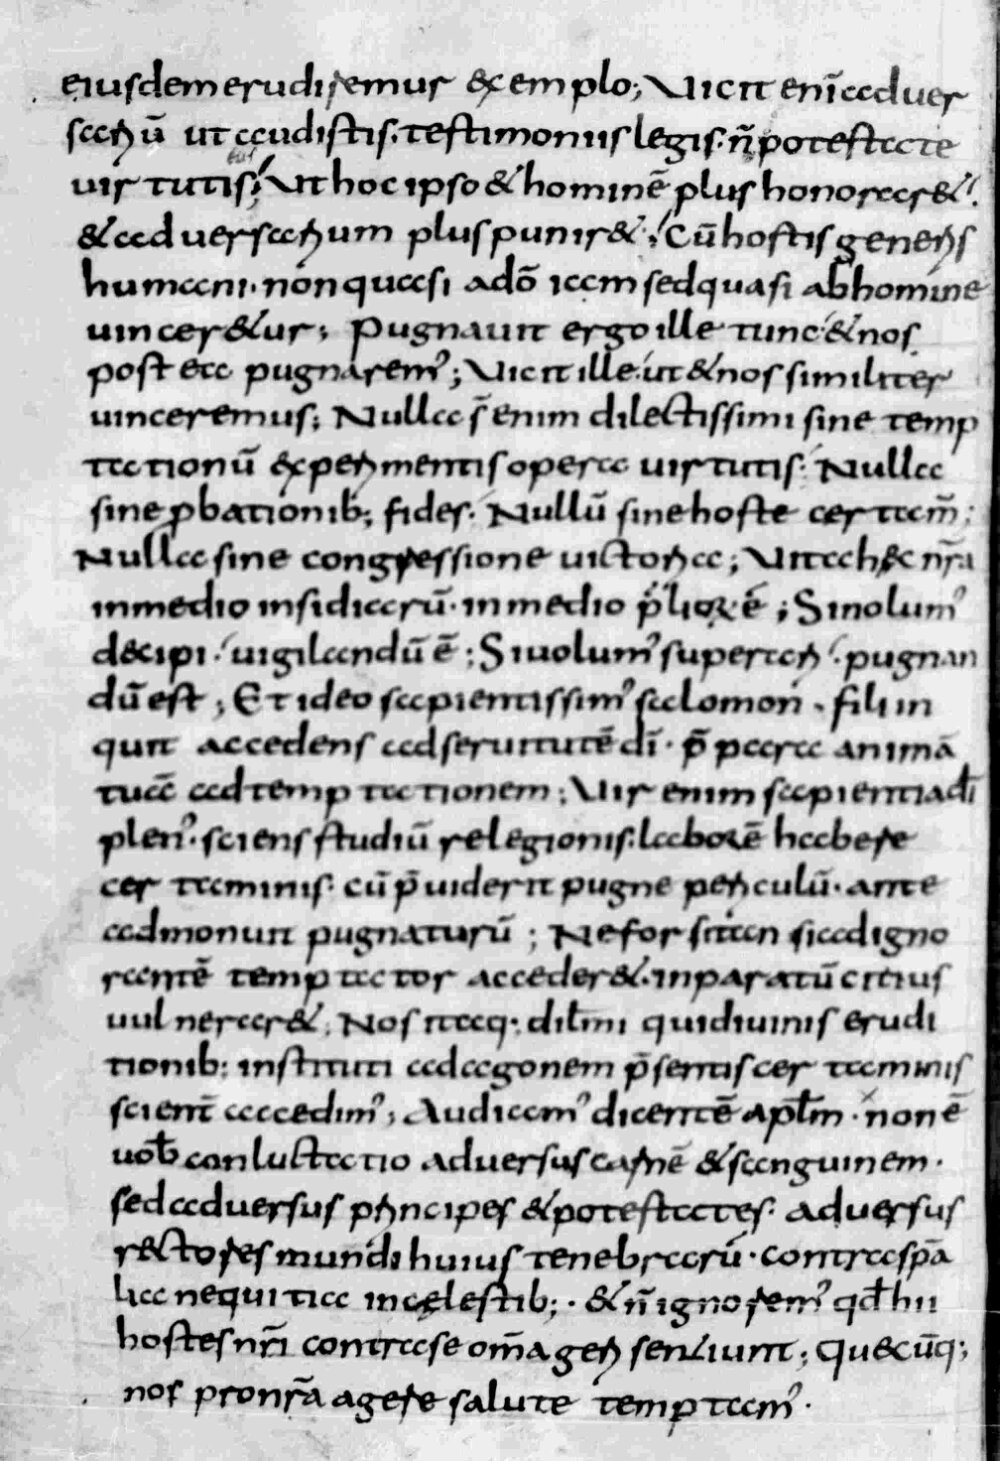 eiusdem erudiremur exemplo; Uicit eni̅ aduer
sariu̅ ut audistis. testimoniis legis. n̅ potestate
uirtutis; Ut hoc ipso & homine̅ plus honorar&.
& aduersarium plus punir&; Cu̅ hostis generis
humani. non quasi a do̅ iam sed quasi ab homine
uincer&ur; Pugnauit ergo ille tunc. & nos
postea pugnarem᾽; Uicit ille. ut & nos similiter
uinceremus; Nulla s̅ enim dilectissimi sine temp
tationu̅ experimentis opera uirtutis. Nulla
sine p̱bationib; fides. Nullu̅ sine hoste certam̅;
Nulla sine congressione uictoria; Uita haec nr̅a
in medio insidiaru̅. in medio p̅lioꝝ e̅; Si nolum᾽
decipi. uigilandu̅ e̅; Si uolum᾽ superari. pugnan
du̅ est; Et ideo sapientissim᾽ salomon. fili in
quit accedens ad seruitute̅ di̅. p̅para anima̅
tua̅ ad temptationem; Uir enim sapientia di̅
plen᾽. sciens studiu̅ relegionis. labore̅ habere
certaminis. cu̅ p̅uiderit pugne periculu̅. ante
admonuit pugnaturu̅; Ne forsitan si ad igno
rante̅ temptator acceder&. inparatu̅ citius
uulnerar&; Nos itaq; dil̅mi qui diuinis erudi
tionib; instituti ad agonem p̅sentis certaminis
scient̅ accedim᾽; Audiam᾽ dicente̅ apl̅m. non e̅
uob̅ conluctatio aduersus carne̅ & sanguinem.
sed aduersus principes & potestates. aduersus
rectores mundi huius tenebraru̅. contra sp̅a
lia nequitiae in cęlestib;. & n̅ ignorem᾽ qd̅ hii
hostes nr̅i contra se om̅a geri sentiunt; quecu̅q;
nos pro nr̅a agere salute temptam᾽.